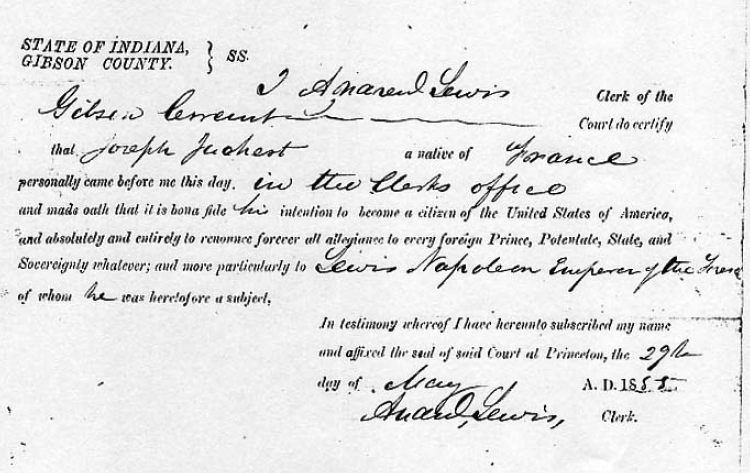 STATE OF INDIANA, } SS.
GIBSON COUNTY.
I Lewis Clerk of the
Gibson Circuit Court do certify
that Joseph Juchert a native of France
personally came before me this day, in the Clerks office
and made oath that it is bona fide his intention to become a citizen of the United States of America,
and absolutely and entirely to renounce forever all allegiance to every foreign Prince, Potentate, State, and
Sovereignty whatever; and more particularly to Lewis Napoleon Emperor of the
of whom he was heretofore a subject,
In testimony whereof I have hereunto subscribed my name
and affixed the seal of said Court at Princeton, the 29th
day of May A. D. 1855
Lewis, Clerk.